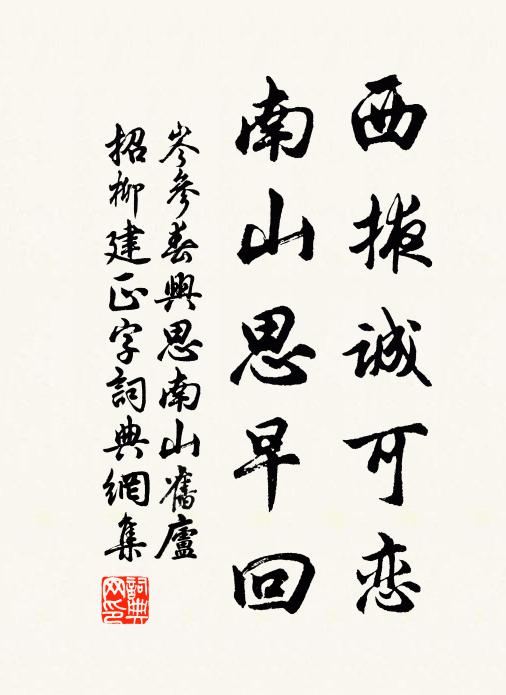 西掖诚可恋
南山思早回
岑參春興思南山舊廬
招柳建正字詞典網集
詞典网印